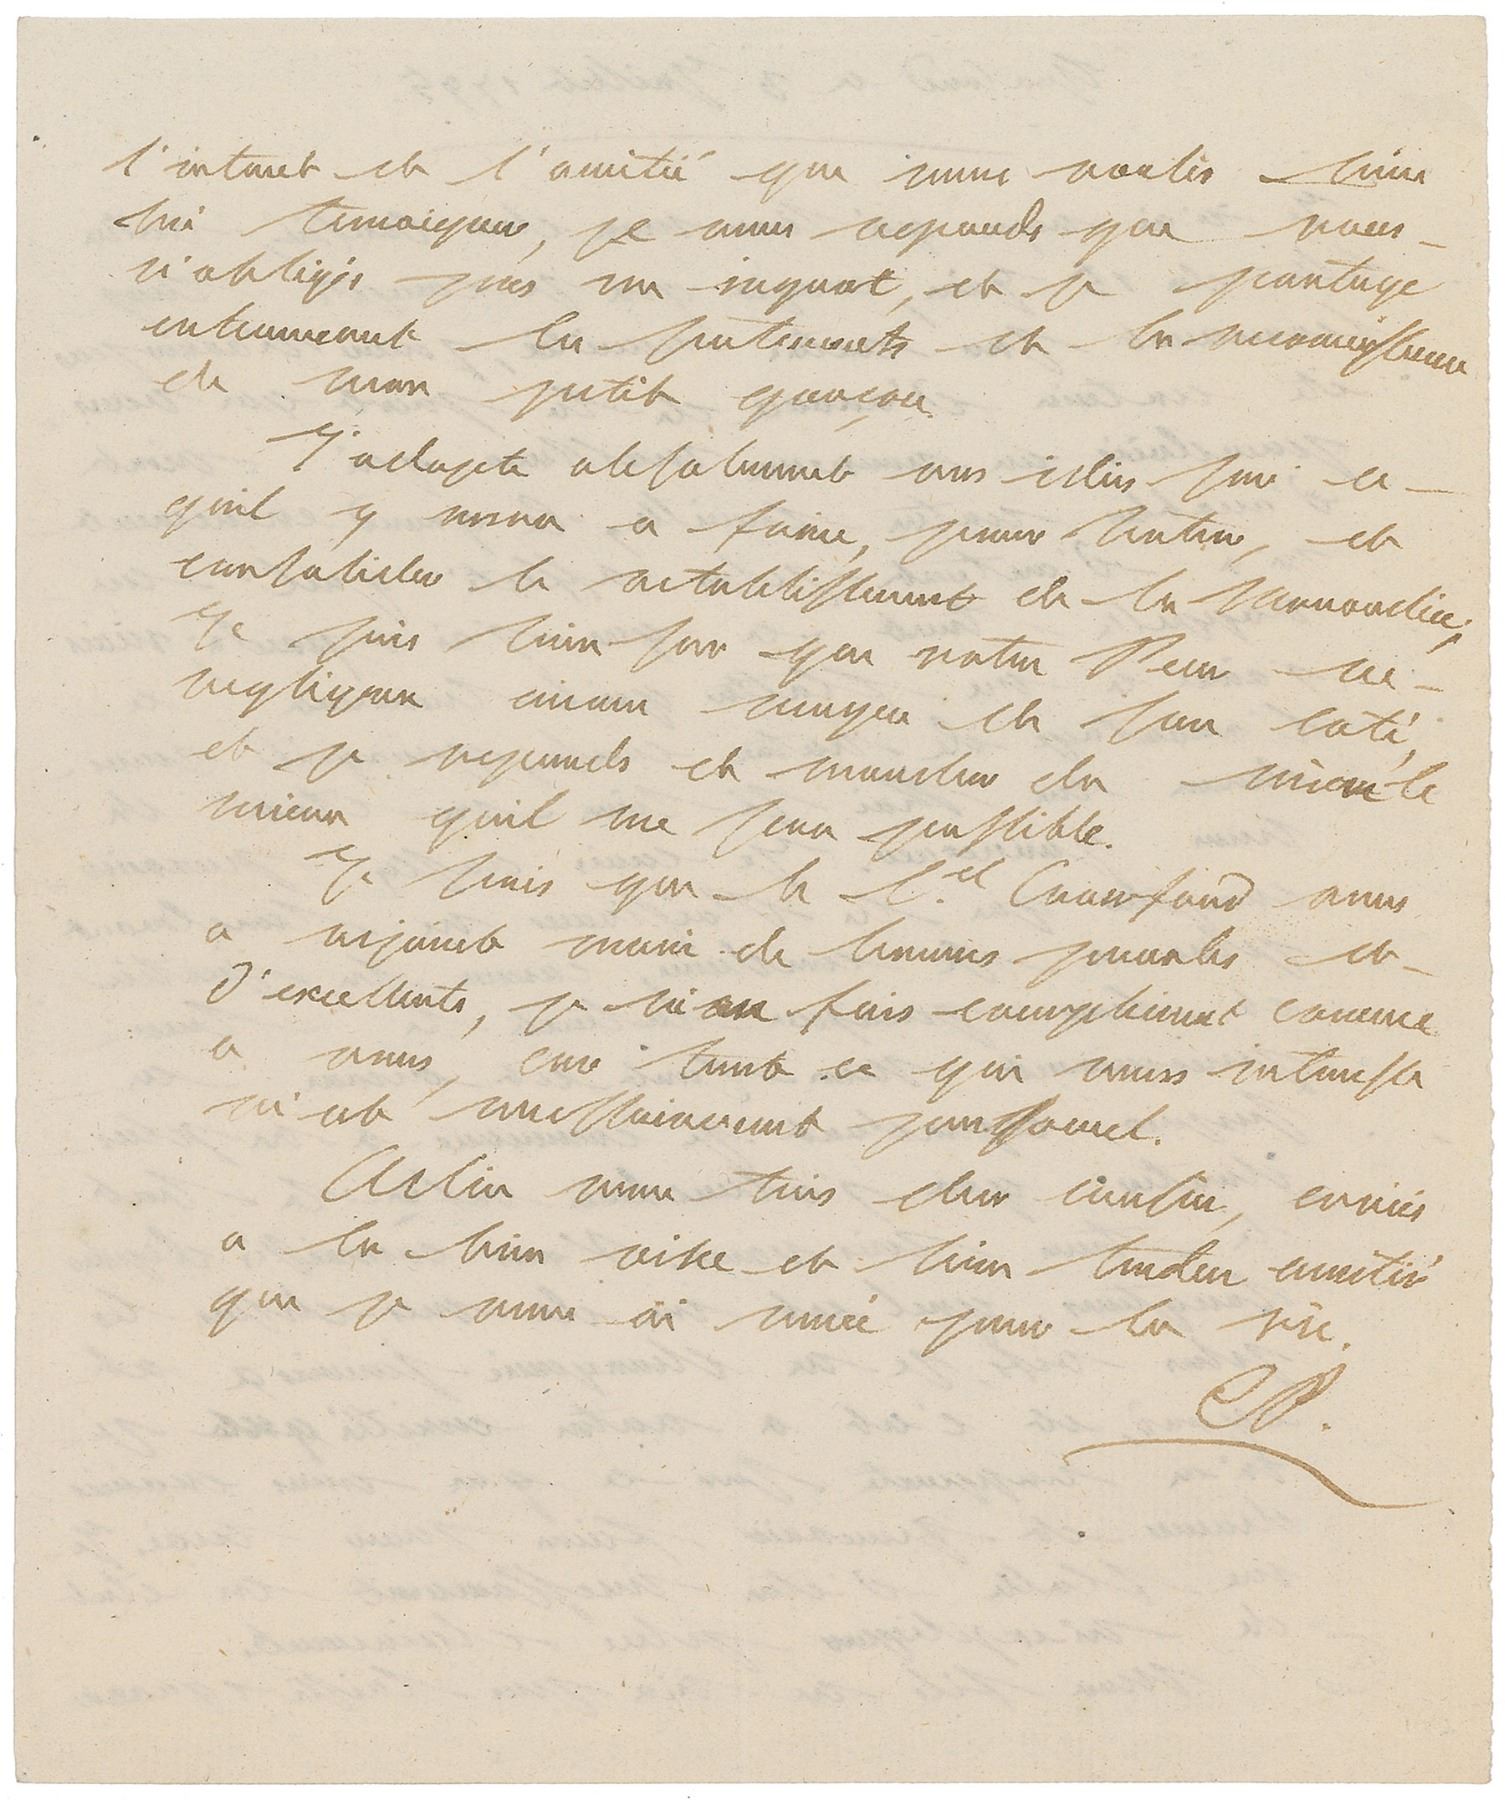 l'interet et l'amitié que vous voulés bien
lui temoigner, je vous reponds que vous
n'obligés pas un ingrat, et je partage
entierement les sentiments et la reconnoissance
de mon petit garçon.
J'adopte absolument vos idées sur ce
quil y aura a faire, pour hater, et
consolider le retablissement de la Monarchie,
Je suis bien sur que votre Sœur ne
negligera aucun moyen de son coté,
et je reponds de marcher du mien le
mieux quil me sera possible.
Je sais que le L.el Crawford vous
a rejoint muni de bonnes paroles et
d'excellents, je lui en fais compliment comme
a vous, car tout ce qui vous interesse
m'est necessairement personnel.
Adieu mon tres cher cousin, croiés
a la bien vive et bien tendre amitié
que je vous ai voué pour la vie.
CP.